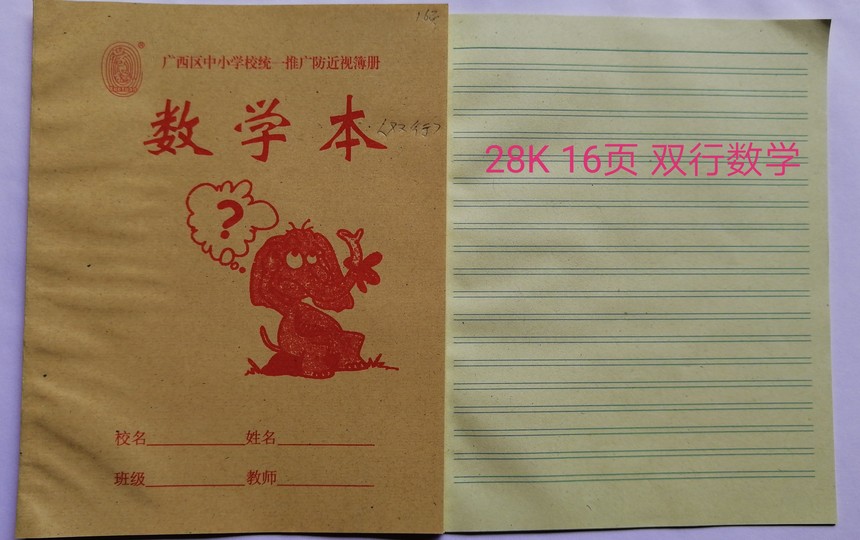 16页
广西区中小学校统一推广防近视簿册
数学本
(双行)
?
校名 姓名
班级 教师
28K 16页 双行数学